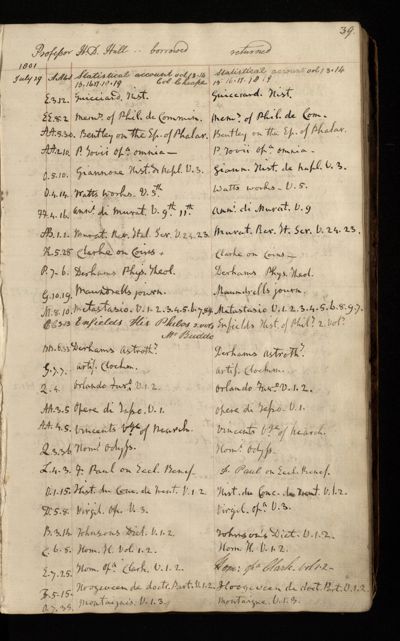 39.
Professor H. D. Hill .. borrowed returned
1801
July 29 A.A.4.1 Statistical account vol 13.14 Statistical account vol 13.14
15.16.17.18.19 15 16.17.18.19
E.3.12. Guicciard. Hist. Guicciard. Hist
EE.5.2 Mem.s of Phil. de Commin. Mem.s of Phil. de Com.
AA.3.30. Bentley on the Ep. of Phalar. Bentley on the Ep. of Phalar.
AA.2.10. P. Jovii Op.a omnia — P. Jovii Op.a omnia —
O.5.10. Giannone Hist. di Napl. V. 3. Giann. Hist. de Napl. V. 3.
D.4.14. Watts works. V. 5th Watts works — V. 5.
4.16. Ann.i di Murat. V. 9th 11th. Ann.i di Murat. V. 9
1.1. Murat. Rer. Ital. Scr. V. 24. 23. Murat. Rer. It. Scr. V. 24. 23.
5.25 Clarke on Coins. Clarke on Coins —
P.7.6. Derhams Phys. Theol. Derhams Phys. Theol.
G.10.19. Maundrells journ. Maundrells journ.
M.8.10. Metastasio. V. 1. 2. 3. 4. 5. 6. 7. 8.9. Metastasio V. 1. 2. 3. 4. 5. 6. 8. 9. 7.
Enfields His Philos 2 vols Enfields Hist. of Phil.y 2. Vol.s
Mr Buddo
Derhams Astroth.y Derhams Astroth.y
G.7.7. Artif. Clockm. Artif. Clockm.
Q.4. Orlando Fur.o V. 1. 2. Orlando Fur.o V. 1. 2.
AA.3.5 Opere di V. 1. Opere di V. 1.
AA.4.5. Vincents V.ge of Nearch. Vincents V.ge of Nearch.
Q.3.36 Hom.i Odyss. Hom.i Odyss.
L.4.3. F. Paul on Eccl. Benef. F. Paul on Eccl. Benef.
U.1.15. Hist. du Conc. de Trent. V. 1. 2 Hist. du Conc. de Trent. V. 1. 2.
D.5.8. Virgil. Op. V. 3. Virgil. Op.a V. 3.
B.3.14. Johnsons Dict. V. 1. 2. Johnson's Dict. V. 1. 2.
C.6.8. Hom. Il. Vol 1. 2. Hom Il. V. 1. 2.
E.7.25. Hom. Op.a Clark. V. 1. 2. Hom: Op.a Clark. Vol 1. 2
5.15. Hoogeveen de doct. Part. V. 1. 2. Hoogeveen de doct. Part. V. 1. 2.
A.7.35. Montaignes. V. 1. 3. Montaigne. V. 1. 3.